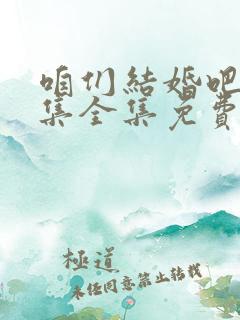 咱们結婚吧
集全集免費
極道
未任同意禁止转载